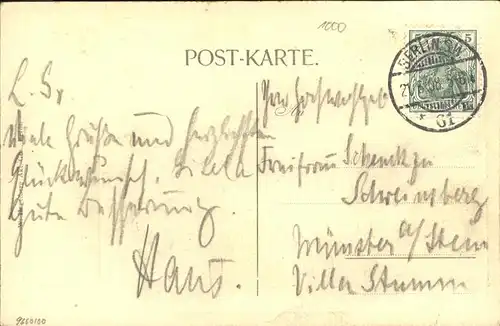 1000
5
POST-KARTE.
BERLIN SW
* 61
L. S.
Viele Grüße und herzlichsten
Glückwunsch.
Gute Besserung
Hans.
Ihre Hochwohlgeb.
Freifrau Schenck zu
Schweinsberg
Münster a/Stein
Villa Stumm
9660180